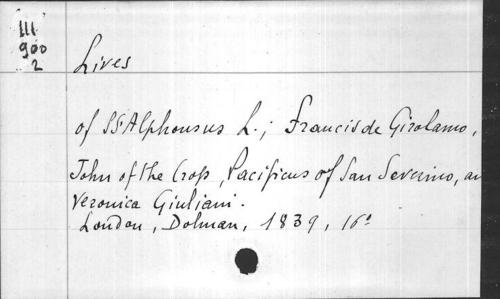 III
900
2
Lives
of SS Alphonsus L.; Francis de Girolamo,
John of the Cross, Pacificus of San Severino, an
Veronica Giuliani.
London, Dolman, 1839, 16º